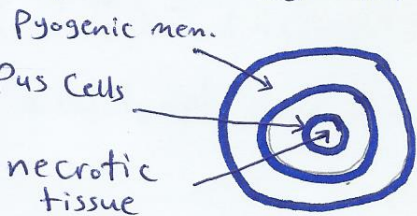 Pyogenic mem.
Pus Cells
necrotic
tissue